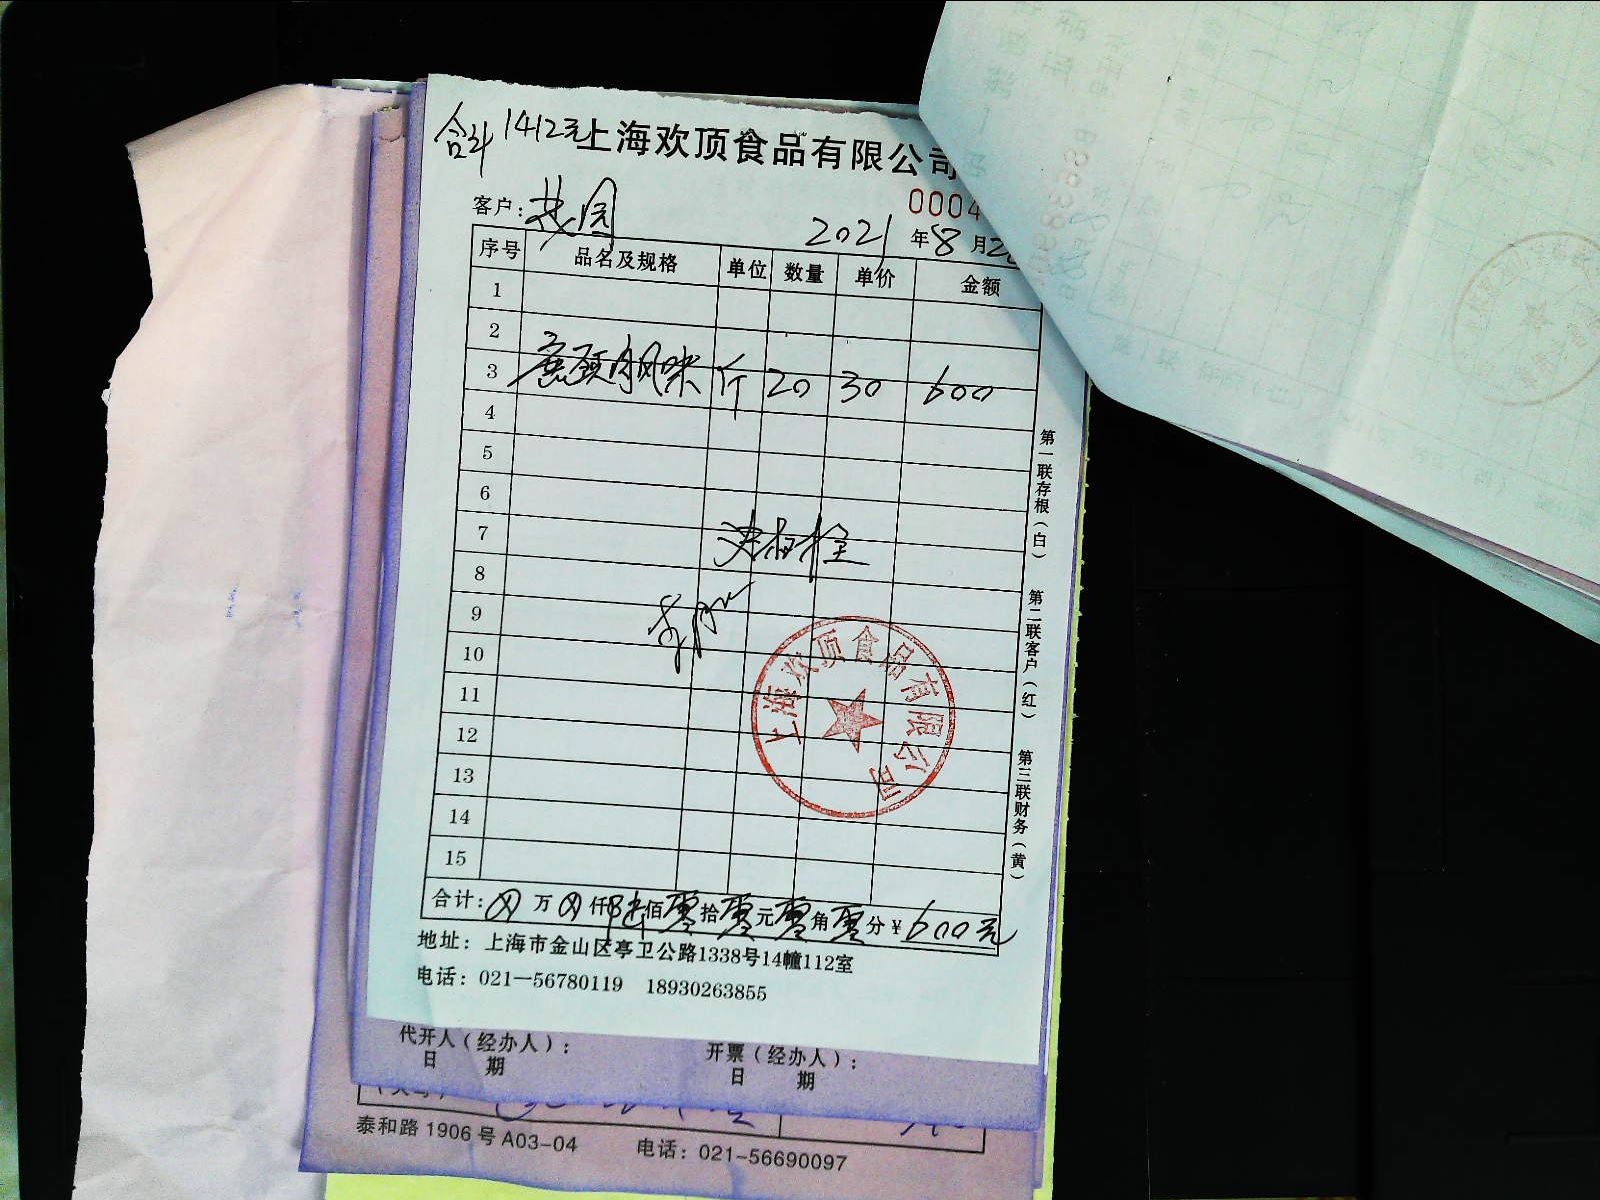 合计1412元
上海欢顶食品有限公司
0004
客户：
2021年8月2
序号 品名及规格 单位 数量 单价 金额
1
2
3 肉风味 斤 20 30 600
4
5
6
7
8
9
10
11
12
13
14
15
上海欢顶食品有限公司
合计：⊗万⊗仟陆佰零拾零元零角零分￥600元
地址：上海市金山区亭卫公路1338号14幢112室
电话：021—56780119 18930263855
第一联存根（白）
第二联客户（红）
第三联财务（黄）
代开人（经办人）： 开票（经办人）：
日 期 日 期
泰和路1906号A03-04 电话：021-56690097